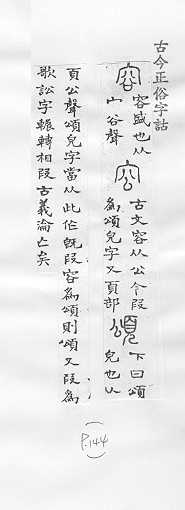 古今正俗字詁
容
容盛也从
宀谷聲
㝐
古文容从公今叚
為頌皃字又頁部
頌
下曰頌
皃也从
頁公聲頌皃字當从此作旣叚容為頌則頌又叚為
歌訟字輾轉相叚古義淪亡矣
(P.144)